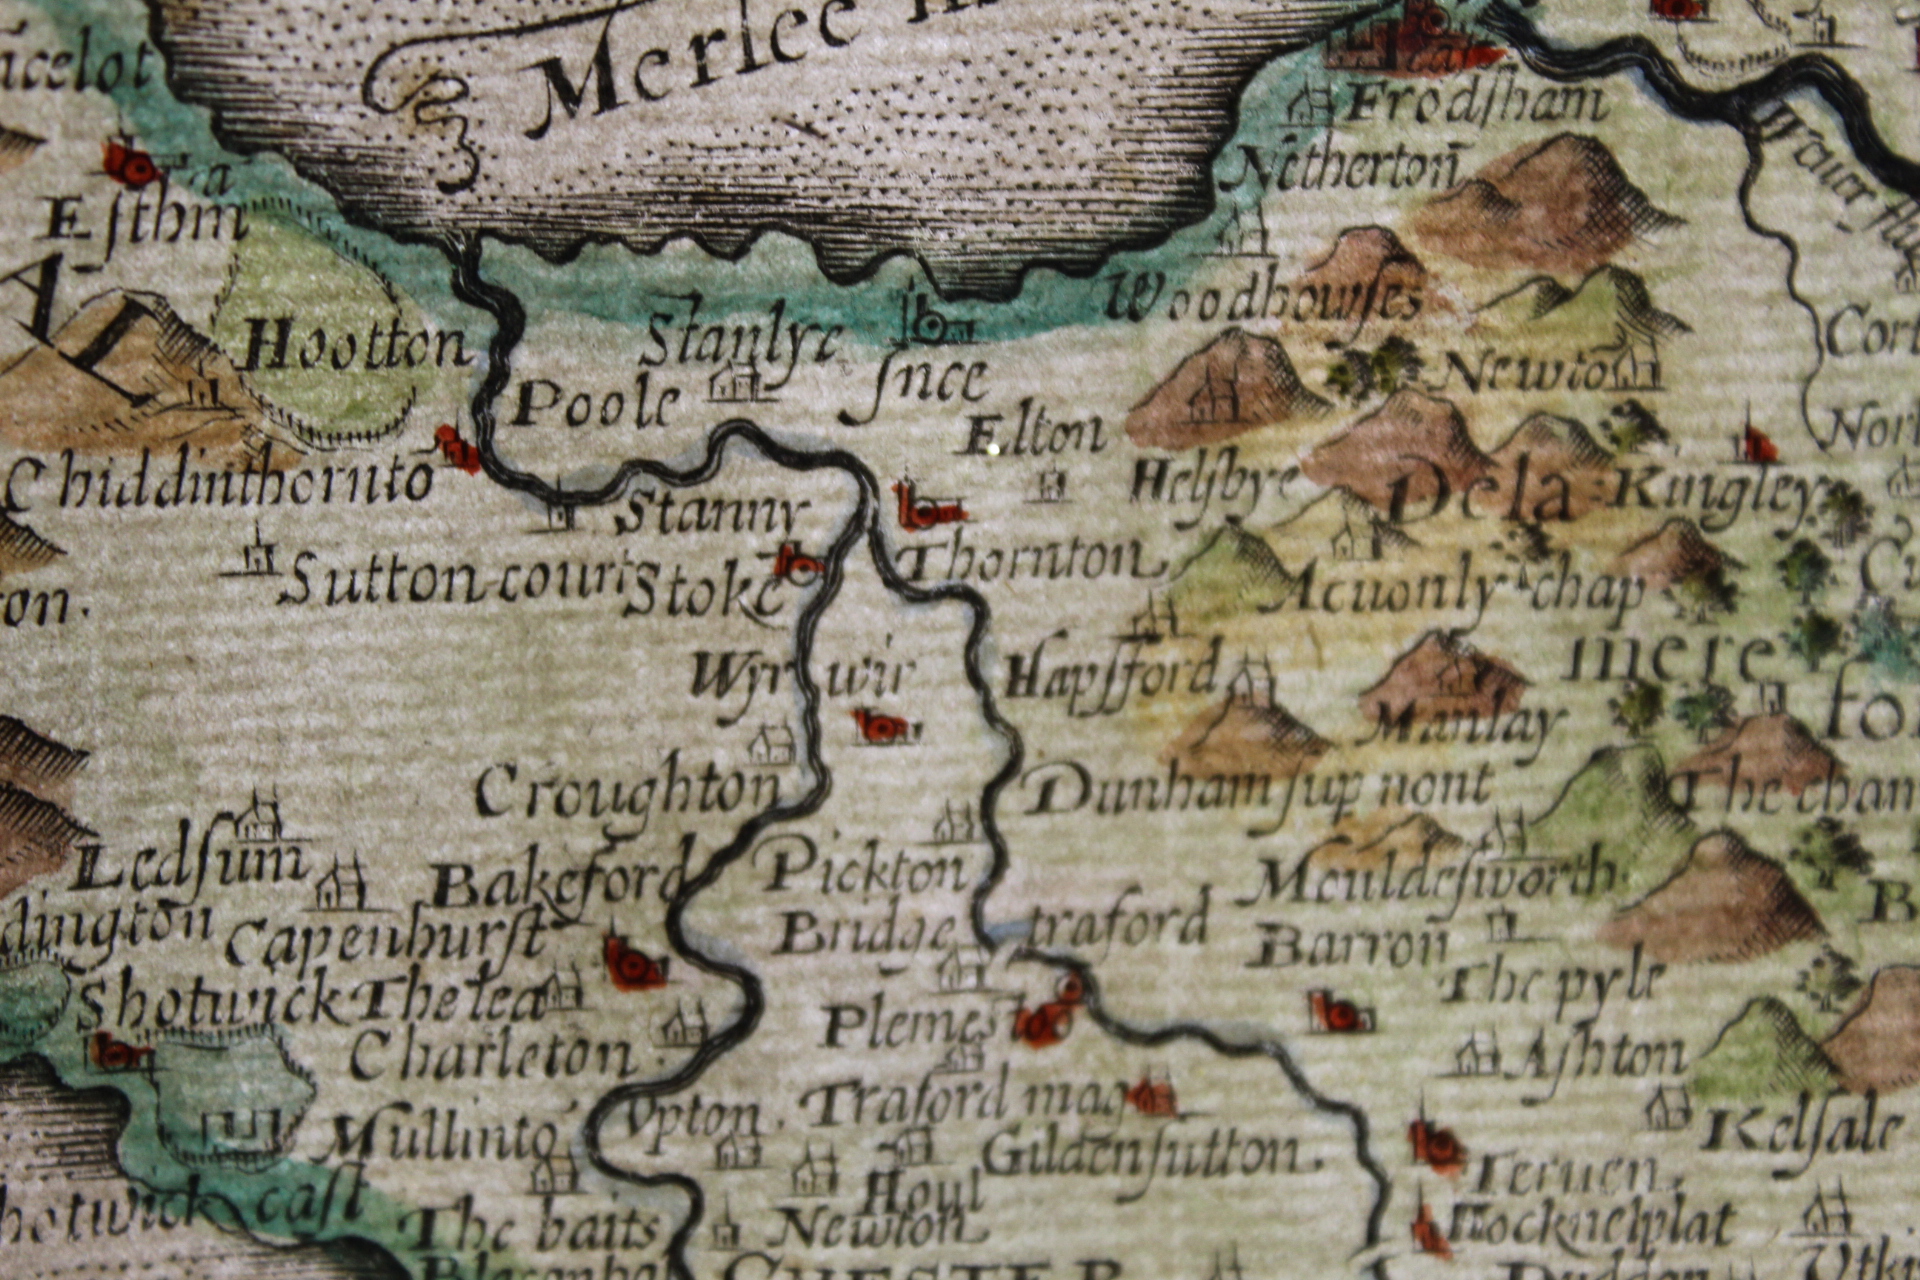 Merlee
Frodſham
Netherton̄
Eſthm̄
a
Woodhowſes
Hootton
Stanlye
Ince
Newto
Poole
Elton
Chiddinthornto
Helſbye
Dela
Kingley
Stanny
Sutton-court
Stoke
Thornton
Acuonly chap
mere
Wyrwir
Hapſford
Manlay
Croughton
Dunham ſup mont
The cham
Ledſum
Bakeford
Pickton
Mouldeſworth
Capenhurſt
Bridge traford
Barron̄
Shotwick
The lea
The pyle
Plemeſto
Charleton
Aſhton
Mullinto
Upton.
Traford mag
Kelſale
Gilden ſutton.
Houl
Teruen.
caſt
The baits
Newton
Hocknelplat
CHESTER